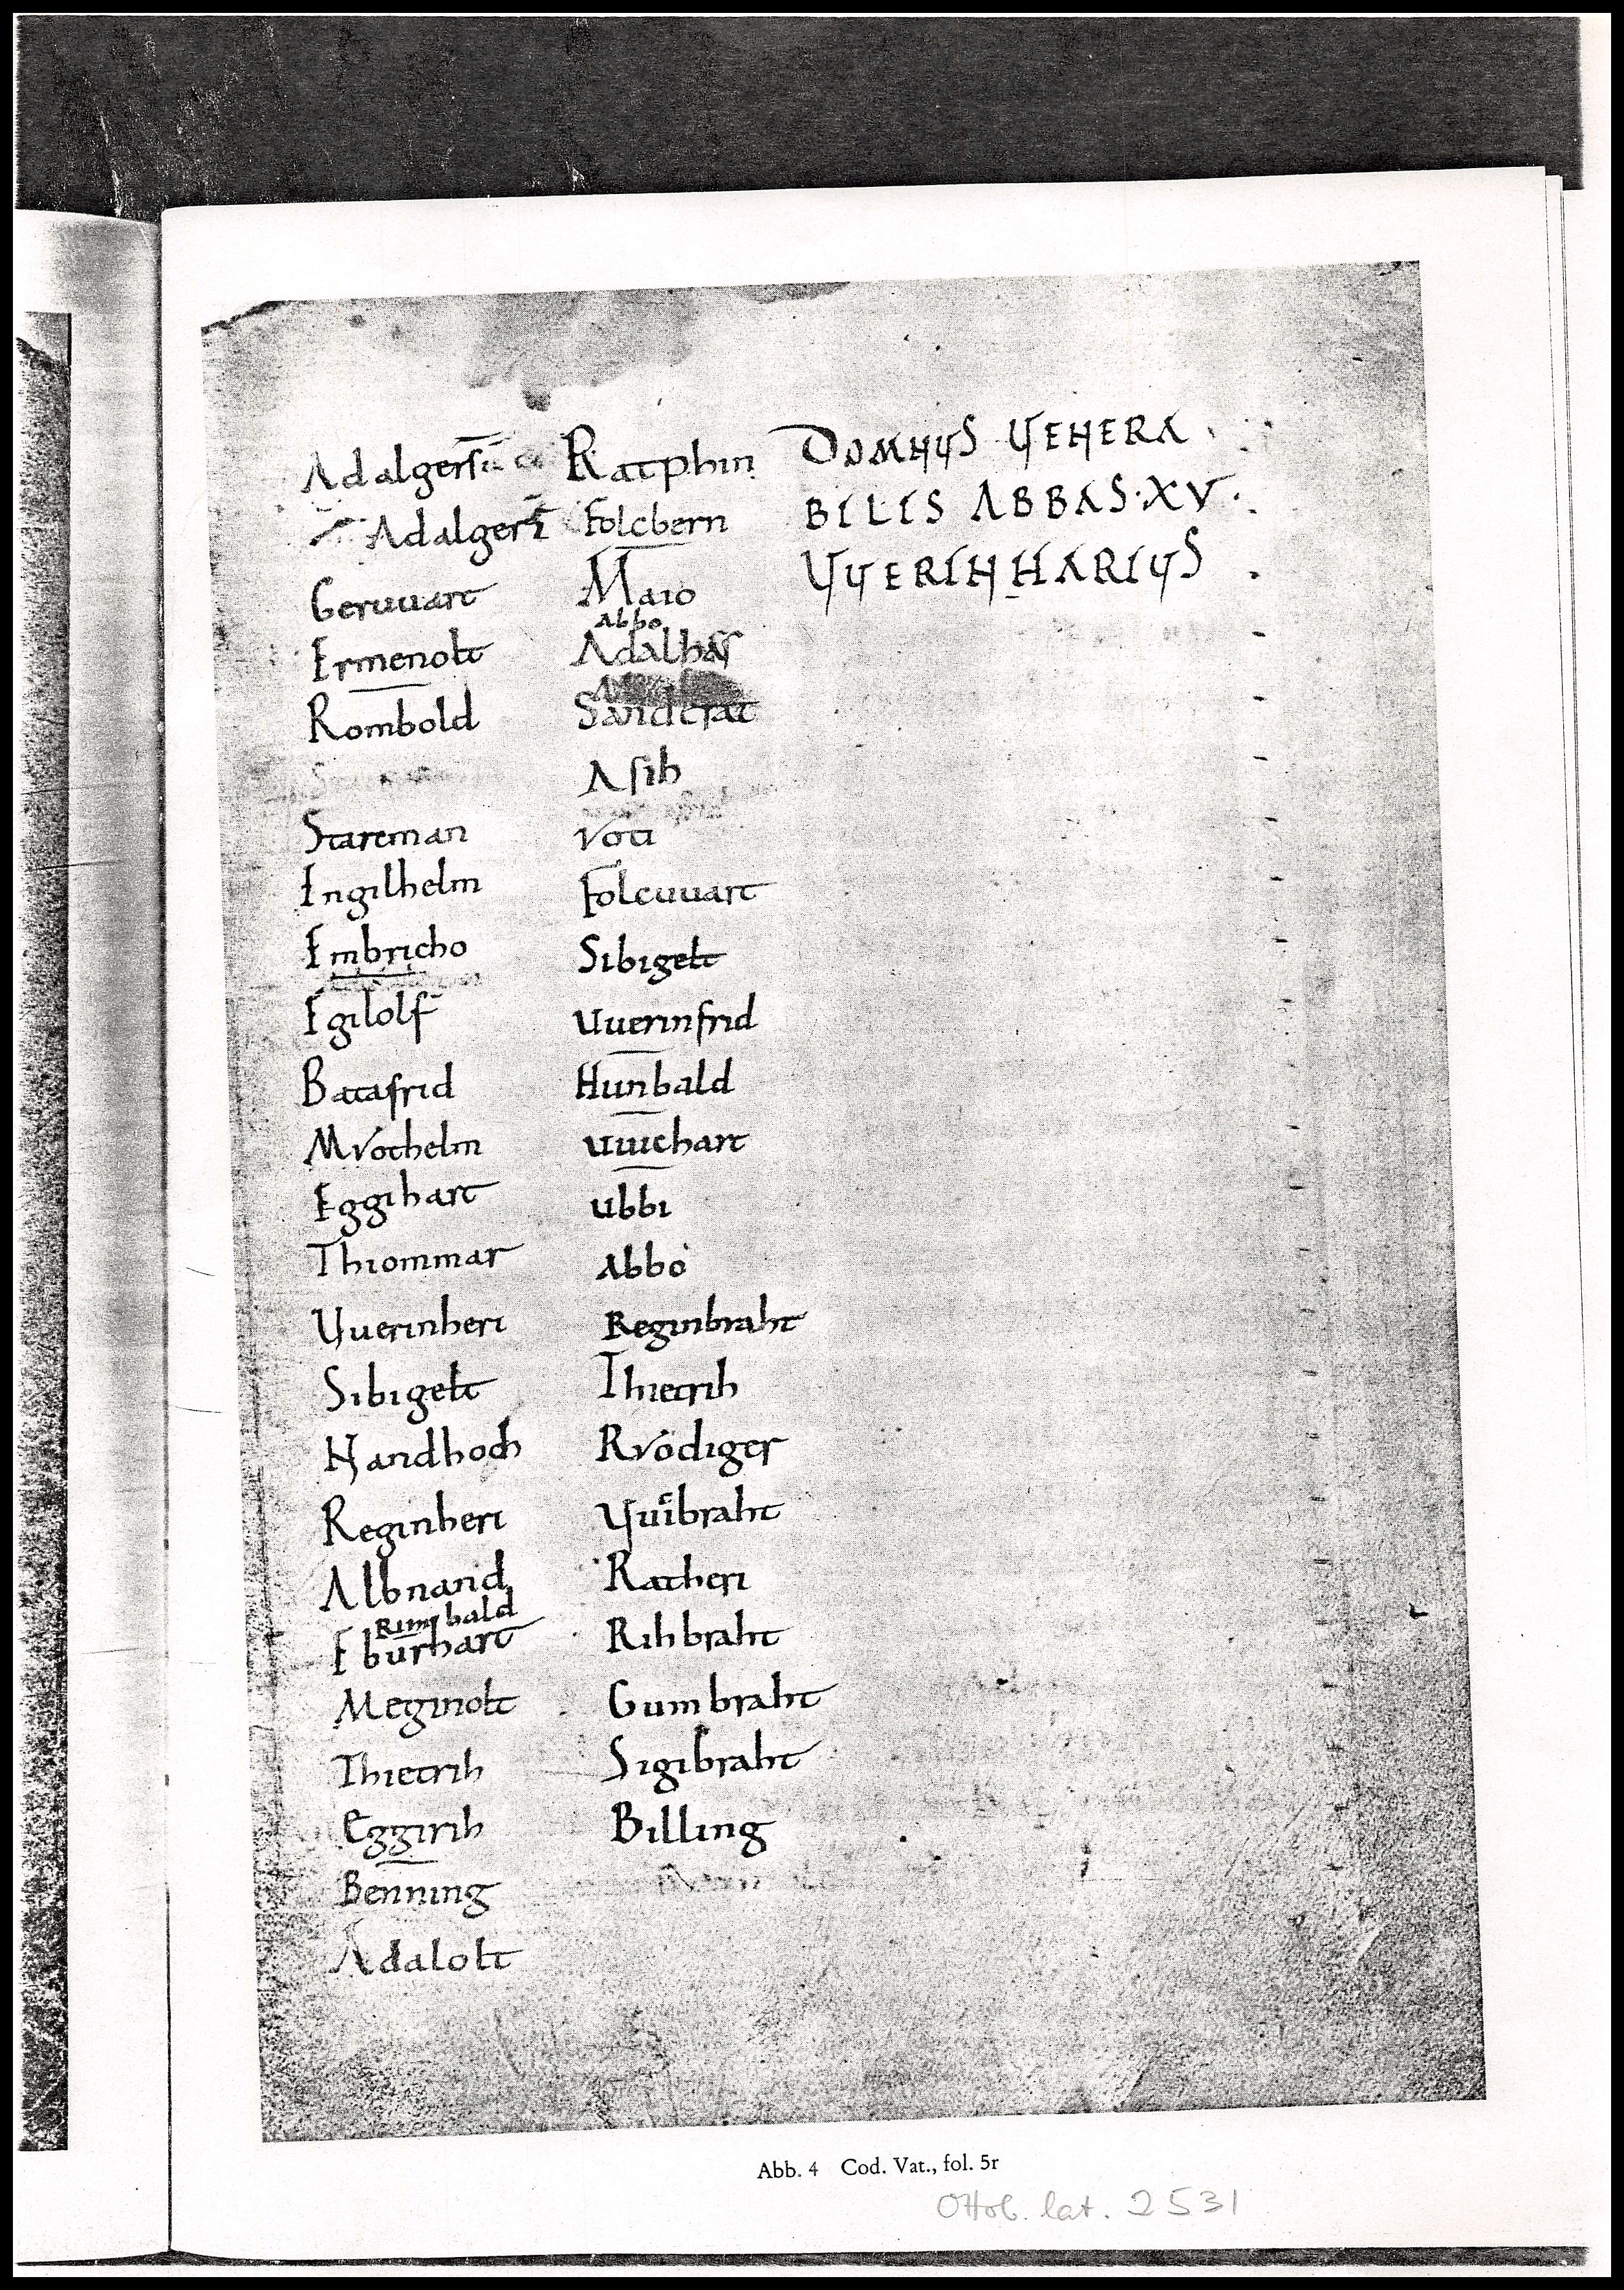 Adalgeri
Adalgeri
Geruuart
Ermenolt
Rombold
Starcman
Ingilhelm
Embricho
Egilolf
Batafrid
Mvothelm
Eggihart
Thiommar
Vuerinheri
Sibigelt
Handhoch
Reginheri
Albnand
Rimbald
Eburhart
Meginolt
Thietrih
Eggirih
Benning
Adalolt
Ratphin
Folcbern
Maio
Abbo
Sandrat
Asih
Voti
Folcuuart
Sibigelt
Uuerinfrid
Hunbald
Uuichart
Ubbi
Abbo
Reginbraht
Thietrih
Rvodiger
Vuibraht
Ratheri
Rihbraht
Gumbraht
Sigibraht
Billing
DOMNUS VENERA
BILIS ABBAS·XV·
VVERINHARIUS
Abb. 4 Cod. Vat., fol. 5r
Ottob. lat. 2531